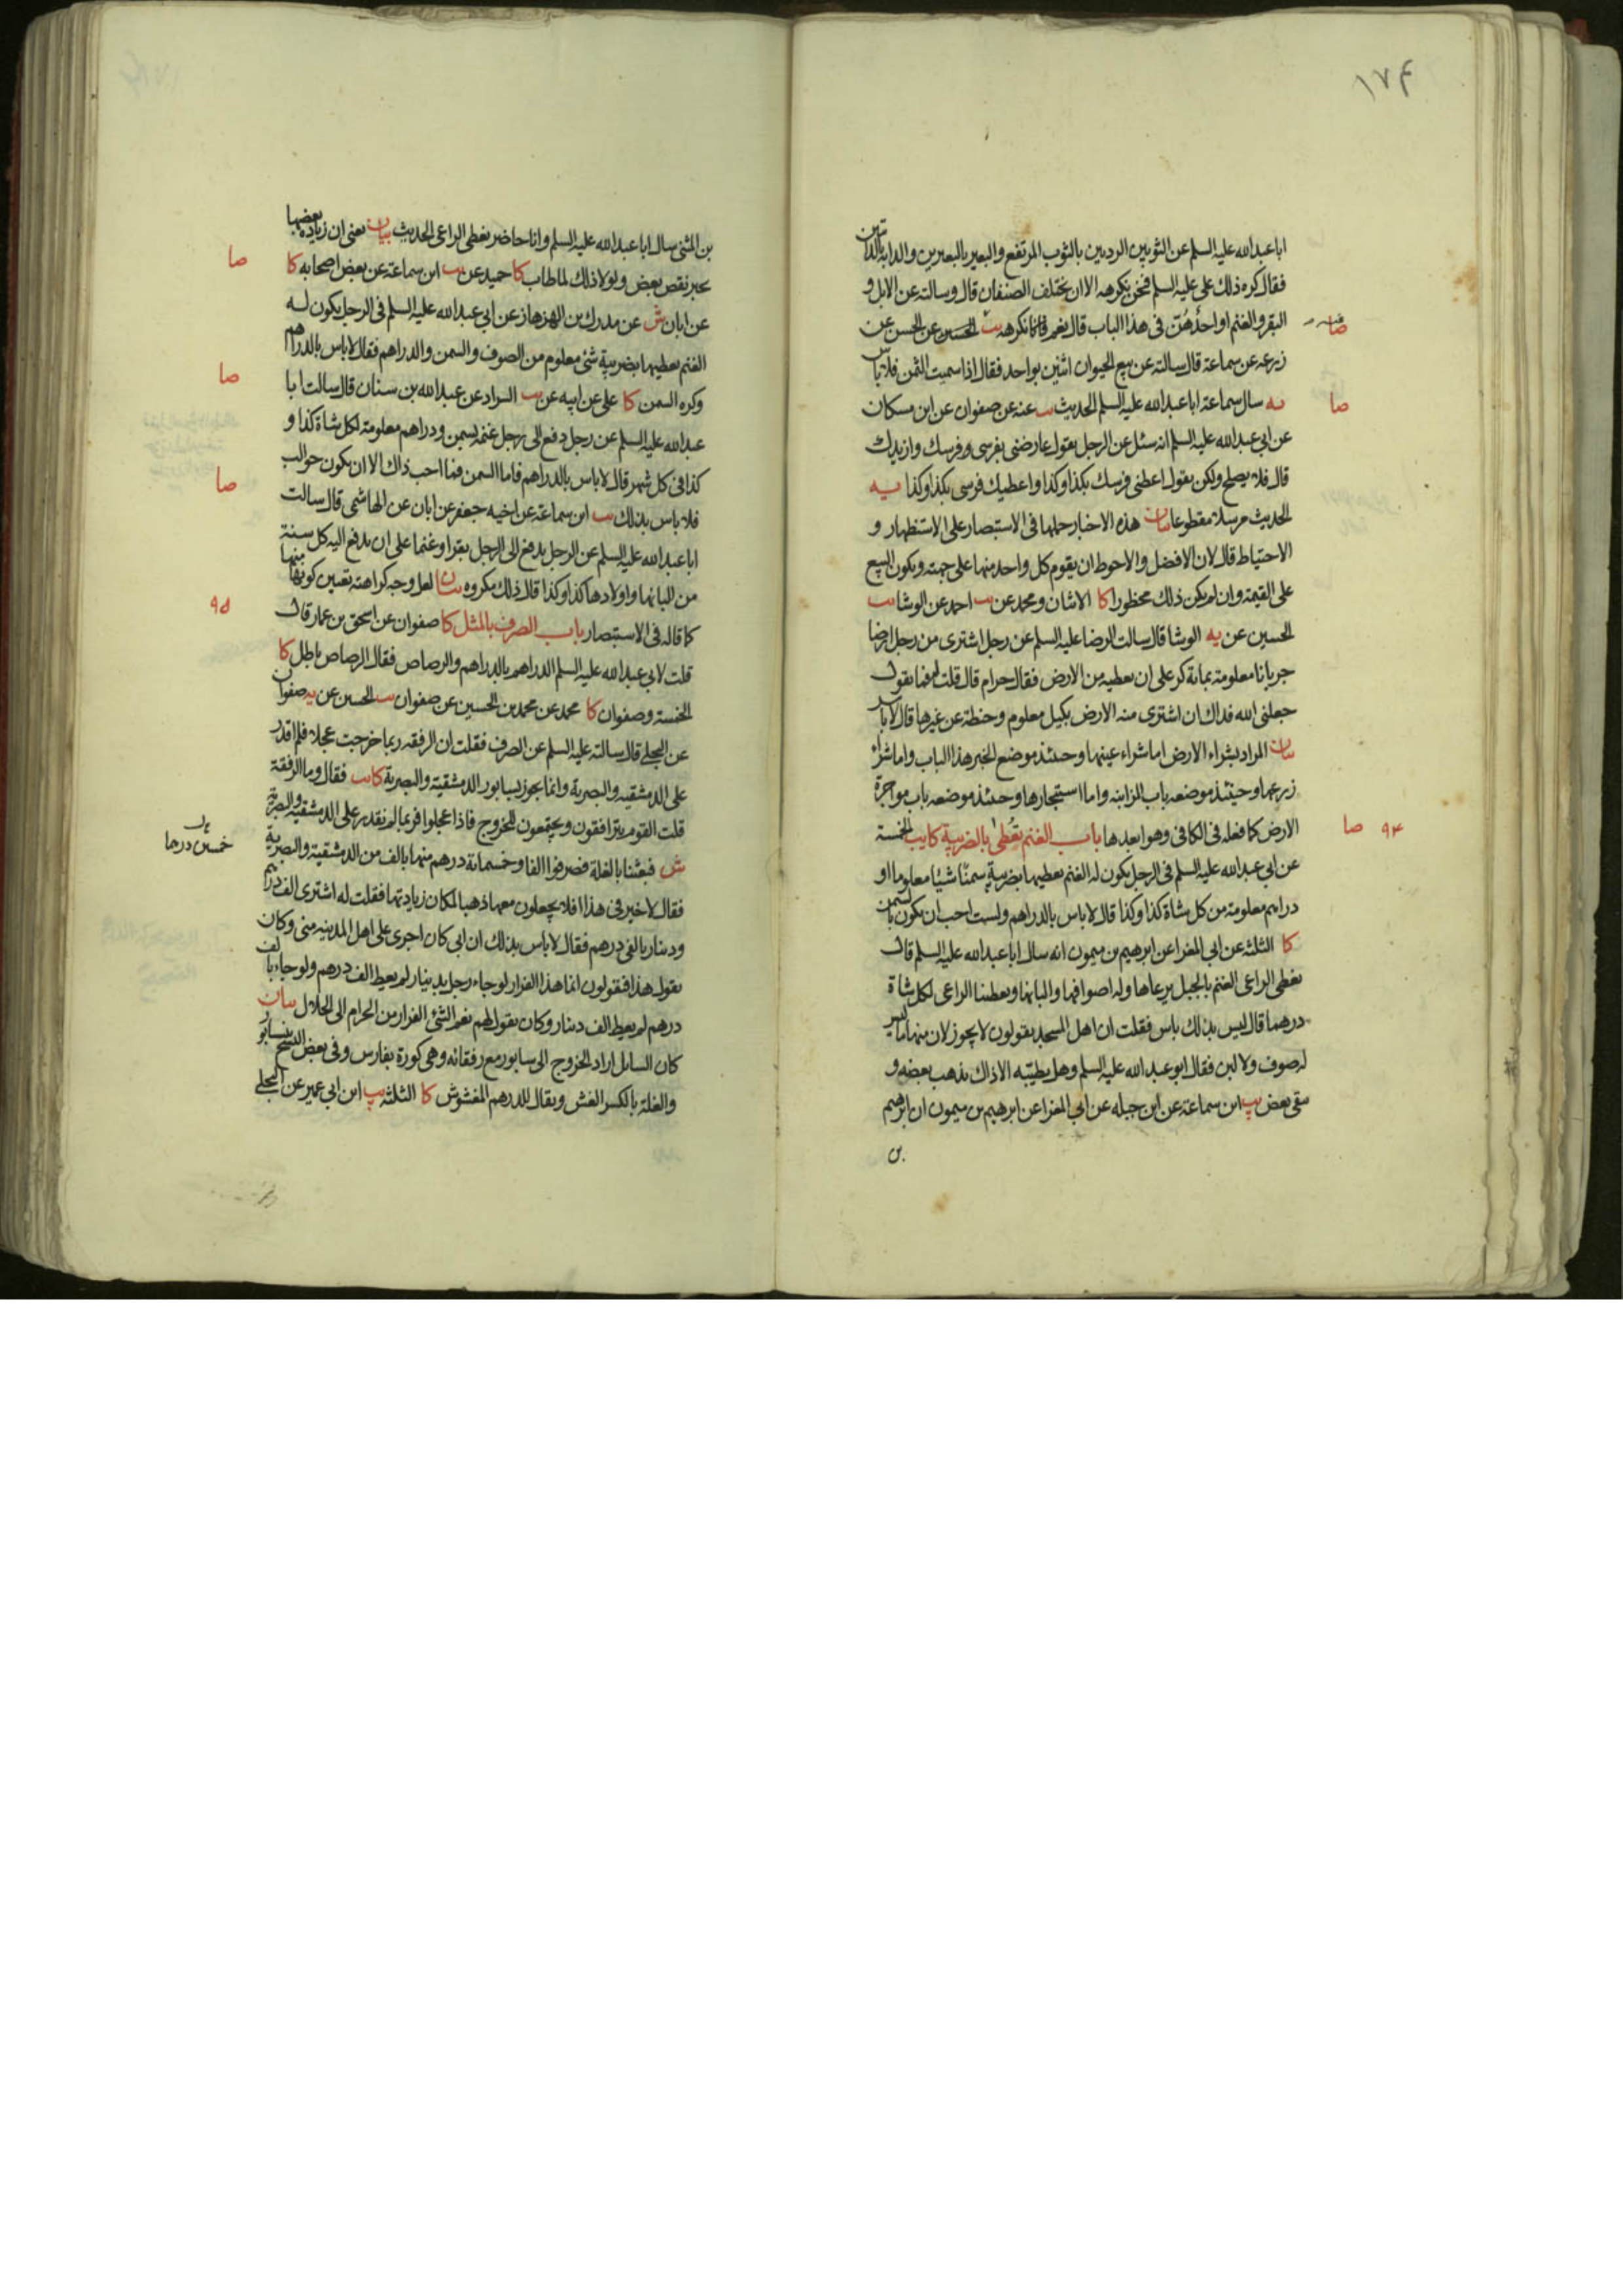 ۱۷۴
ابا عبدالله عليه السلم عن الثوبين الرديين بالثوب المرتفع والبعير بالبعيرين والدابة بالدابتين
فقال كره ذلك على عليه السلم فنحن نكرهه الا ان يختلف الصنفان قال وسالته عن الابل و
البقر والغنم او احدهن فى هذا الباب قال نعم فانا نكرهه يب الحسين عن الحسن عن
صا
زرعه عن سماعة قال سالته عن بيع الحيوان اثنين بواحد فقال اذا سميت الثمن فلا باس
يه سال سماعة ابا عبدالله عليه السلم الحديث يب عنه عن صفوان عن ابن مسكان
صا
عن ابى عبدالله عليه السلم انه سئل عن الرجل يقول عارضنى بفرسى وفرسك وازيدك
قال فلا يصلح ولكن يقول اعطنى فرسك بكذا وكذا واعطيك فرسى بكذا وكذا يه
الحديث مرسلا مقطوعا بيان هذه الاخبار حملها فى الاستبصار على الاستظهار و
الاحتياط قال لان الافضل والاحوط ان يقوم كل واحد منها على جهته ويكون البيع
على القيمة وان لم يكن ذلك محظورا كا الاثنان ومحمد عن يب احمد عن الوشا يب
الحسين عن يه الوشا قال سالت الرضا عليه السلم عن رجل اشترى من رجل ارضا
جربانا معلومة بمائة كر على ان يعطيه من الارض فقال حرام قال قلت له فما تقول
جعلنى الله فداك ان اشترى منه الارض بكيل معلوم وحنطة عن غيرها قال لا باس
بيان المراد بشراء الارض اما شراء عينها وحينئذ موضع الخبر هذا الباب واما شراء
زرعها وحينئذ موضعه باب المزابنه واما استيجارها وحينئذ موضعه باب مواجرة
الارض كما فعله فى الكافى وهو ابعدها باب الغنم تعطى بالضريبة كا يب الخمسة
۹۴ صا
عن ابى عبدالله عليه السلم فى الرجل يكون له الغنم يعطيها بضريبة سمنا شيئا معلوما او
دراهم معلومة من كل شاة كذا وكذا قال لا باس بالدراهم ولست احب ان يكون بالسمن
كا الثلثة عن ابى المغرا عن ابرهيم بن ميمون انه سال ابا عبدالله عليه السلم قال
نعطى الراعى الغنم بالجبل يرعاها وله اصوافها والبانها ويعطينا الراعى لكل شاة
درهما قال ليس بذلك باس فقلت ان اهل المسجد يقولون لا يجوز لان منها ما ليس
له صوف ولا لبن فقال ابو عبدالله عليه السلم وهل يطيبه الا ذاك يذهب بعضه و
يبقى بعض يب ابن سماعة عن ابن جبله عن ابى المغرا عن ابرهيم بن ميمون ان ابرهيم
بن
بن المثنى سال ابا عبدالله عليه السلم وانا حاضر نعطى الراعى الحديث بيان يعنى ان زيادة بعضها
يجبر نقص بعض ولولا ذلك لما طاب كا حميد عن يب ابن سماعة عن بعض اصحابه كا
صا
عن ابان ش عن مدرك بن الهزهاز عن ابى عبدالله عليه السلم فى الرجل يكون له
الغنم يعطيها بضريبة شئ معلوم من الصوف والسمن والدراهم فقال لا باس بالدراهم
وكره السمن كا على عن ابيه عن يب السراد عن عبدالله بن سنان قال سالت ابا
صا
عبدالله عليه السلم عن رجل دفع الى رجل غنمه بسمن ودراهم معلومة لكل شاة كذا و
كذا فى كل شهر قال لا باس بالدراهم فاما السمن فما احب ذاك الا ان يكون حوالب
فلا باس بذلك يب ابن سماعة عن اخيه جعفر عن ابان عن الهاشمى قال سالت
صا
ابا عبدالله عليه السلم عن الرجل يدفع الى الرجل بقرا وغنما على ان يدفع اليه كل سنة
من البانها واولادها كذا وكذا قال ذلك مكروه بيان لعل وجه كراهته تعيين كونها منها
كما قاله فى الاستبصار باب الصرف بالمثل كا صفوان عن اسحق بن عمار قال
۹۵
قلت لابى عبدالله عليه السلم الدراهم بالدراهم والرصاص فقال الرصاص باطل كا
الخمسة وصفوان كا محمد عن محمد بن الحسين عن صفوان يب الحسين عن يه صفوان
عن البجلى قال سالته عليه السلم عن الصرف فقلت ان الرفقه ربما خرجت عجلا فلم اقدر
على الدمشقيه والبصرية وانما يجوز بسابور الدمشقية والبصرية كا يب فقال وما الرفقة
قلت القوم يترافقون ويجتمعون للخروج فاذا عجلوا فربما لم نقدر على الدمشقيه والبصرية
ش فبعثنا بالغلة فصرفوا الفا وخمسمائة درهم منها بالف من الدمشقية والبصرية
خمسين درهما
فقال لا خير فى هذا افلا يجعلون معها ذهبا لمكان زيادتها فقلت له اشترى الف درهم
ودينار بالفى درهم فقال لا باس بذلك ان ابى كان اجرى على اهل المدينه منى وكان
يقول هذا فيقولون انما هذا الفرار لو جاء رجل بدينار لم يعط الف درهم ولو جاء بالف
درهم لم يعط الف دينار وكان يقول لهم نعم الشئ الفرار من الحرام الى الحلال بيان
كان السائل اراد الخروج الى سابور مع رفقائه وهى كورة بفارس وفى بعض النسخ نيسابور
والغلة بالكسر الغش ويقال للدرهم المغشوش كا الثلثه يب ابن ابى عمير عن البجلى